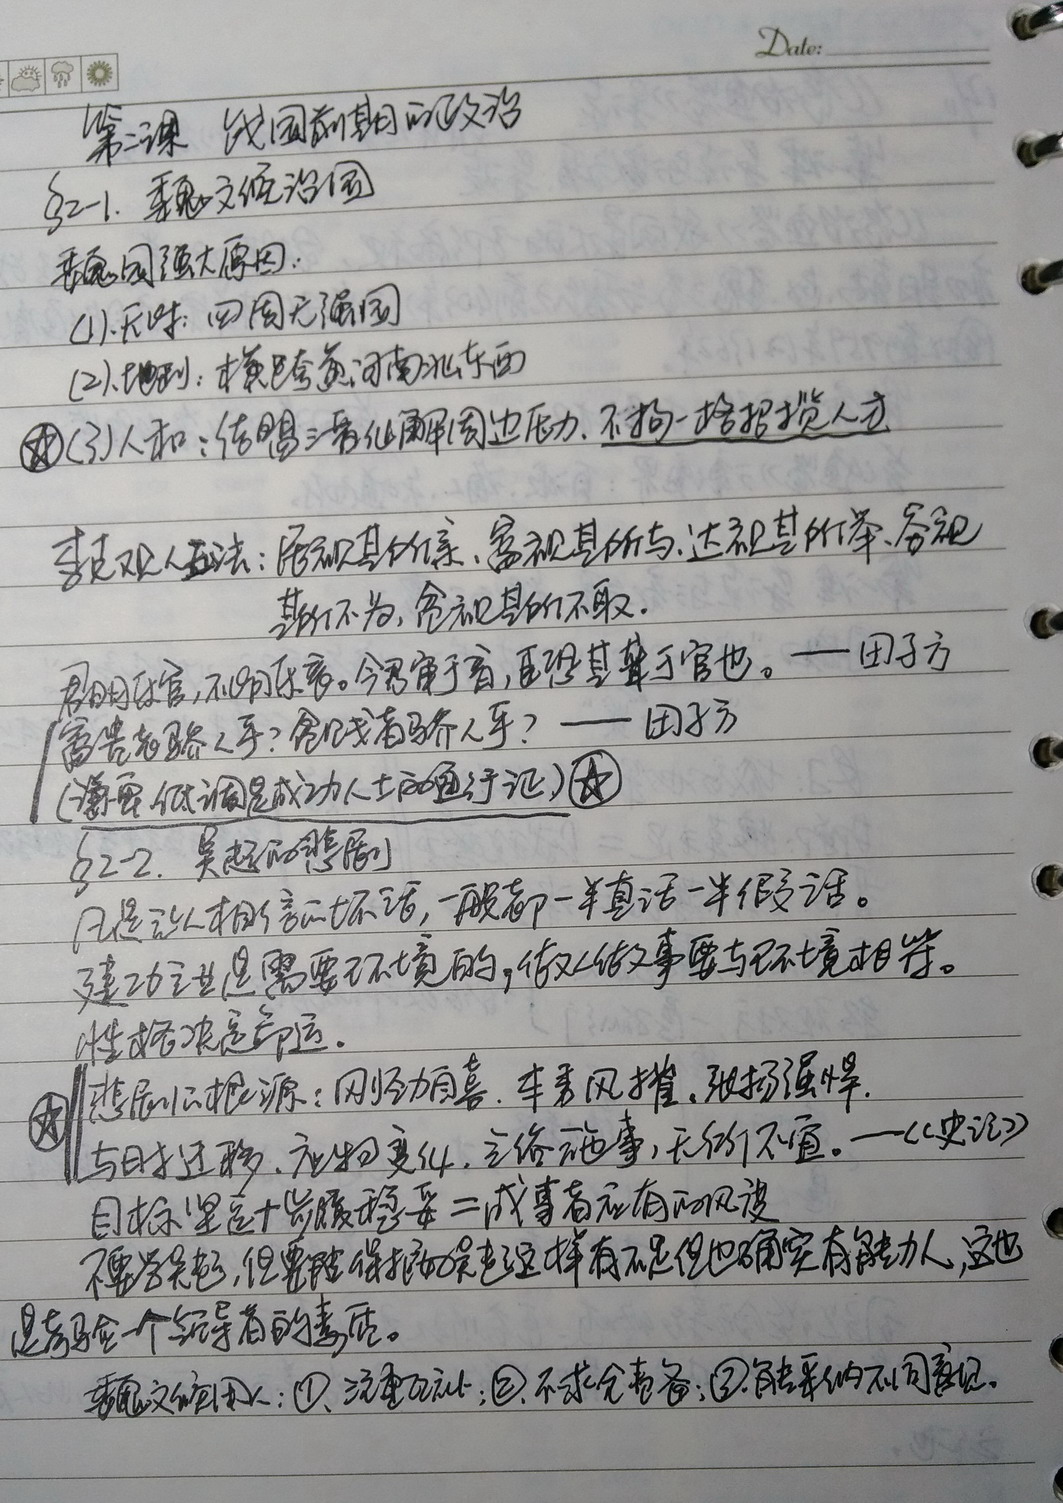 Date:
第二课 战国前期的政治
§2-1. 魏文侯治国
魏国强大原因:
(1).天时: 四周无强国
(2).地利: 横跨黄河南北东西
(3)人和: 结盟三晋化解周边压力. 不拘一格招揽人才
李克观人五法: 居视其所亲、富视其所与、达视其所举、窘视
其所不为, 贫视其所不取.
君明乐官, 不明乐音。今君审于音, 臣恐其聋于官也。——田子方
富贵者骄人乎? 贫贱者骄人乎? ——田子方
(谦虚、低调是成功人士的通行证)
§2-2. 吴起的悲剧
凡是让人相信的坏话, 一般都一半真话一半假话。
建功立业是需要环境的, 做人做事要与环境相符。
性格决定命运。
悲剧的根源: 刚劲自喜. 木秀风摧. 张扬强悍.
与时迁移、应物变化, 立俗施事, 无所不宜。——《史记》
目标坚定+步履稳妥=成事者应有的风度
不要学吴起, 但要能保护好吴起这样有不足但也确实有能力人, 这也
是考验一个领导者的素质。
魏文侯用人: ①. 流重瓦砾; ②. 不求全责备; ③. 能采纳不同意见。